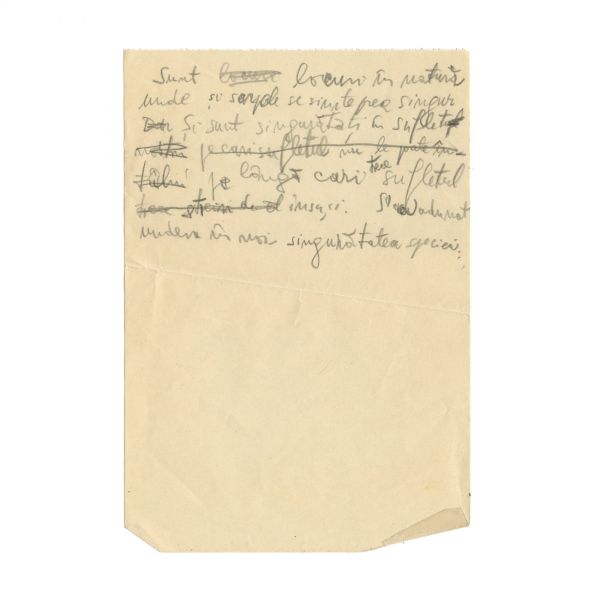 Sunt locuri în natură
unde și șarpele se simte prea singur
Și sunt singurătăți în sufletul
nostru pe cari sufletul nu le poate în-
tâlni pe lângă cari trece sufletul
însuși. S'a adunat
undeva în noi singurătatea speciei.